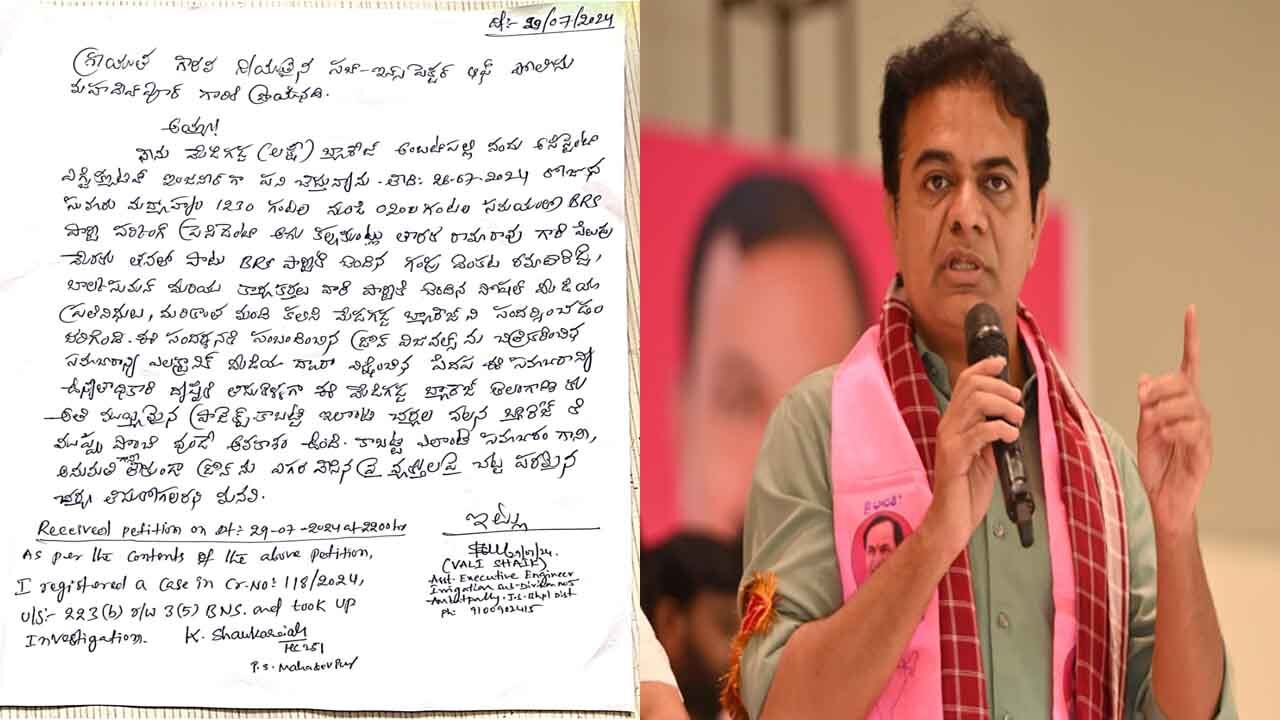 తే:- 29/07/2024
శ్రీయుత గౌరవ నీయులైన సబ్-ఇన్స్ పెక్టర్ ఆఫ్ పోలీసు
మహాదేవ్ పూర్ గారికి వ్రాయునది.
అయ్యా!
నేను మేడిగడ్డ (లక్ష్మీ) బ్యారేజ్ అంబటిపల్లి నందు అసిస్టెంటు
ఎగ్జిక్యూటివ్ ఇంజనీర్ గా పని చేస్తున్నాను. తారీ: 26-07-2024 రోజున
సుమారు మధ్యాహ్నం 1230 గంటల నుండి 0200 గంటల సమయంలో BRS
పార్టీ వర్కింగ్ ప్రెసిడెంట్ అగు కల్వకుంట్ల తారక రామారావు గారి పిలుపు
మేరకు తనతో పాటు BRS పార్టీకి చెందిన గండ్ర వెంకట రమణారెడ్డి,
బాల్క సుమన్ మరియు కార్యకర్తలు వారి పార్టీకి చెందిన సోషల్ మీడియా
ప్రతినిధులు, మరికొంత మంది కలసి మేడిగడ్డ బ్యారేజ్ ని సందర్శించడం
జరిగింది. ఈ సందర్శనకి సంబంధించిన డ్రోన్ విజువల్స్ ను చిత్రీకరించిన
సమాచారాన్ని ఎలక్ట్రానిక్ మీడియా ద్వారా వీక్షించిన పిదప ఈ సమాచారాన్ని
ఉన్నతాధికారి దృష్టికి తీసుకెళ్ళగా ఈ మేడిగడ్డ బ్యారేజ్ తెలంగాణ కు
అతి ముఖ్యమైన ప్రాజెక్ట్ కాబట్టి ఇలాంటి చర్యల వలన బ్యారేజ్ కి
ముప్పు పొంచి వుండే అవకాశం ఉంది. కాబట్టి ఎలాంటి సమాచారం గాని,
అనుమతి లేకుండా డ్రోన్ ను ఎగర వేసిన పై వ్యక్తులపై చట్ట పరమైన
చర్య తీసుకోగలరని మనవి.
Received petition on Dt: 29-07-2024 at 2200 hr
As per the contents of the above petition,
I registered a case in Cr.No: 118/2024,
U/s:- 223(b) r/w 3(5) BNS. and took up
Investigation. K. Shankaraiah
HC 251
P.S. Mahadevpur
ఇట్లు
(VALI SHAIK)
Asst. Executive Engineer
Irrigation Sub-Division No5
Ambatpally. J.S. Bhpl Dist
Ph: 9100902415
జై భారత్